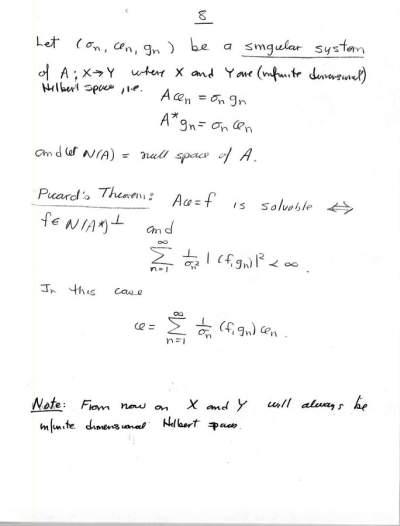 8
Let (σn, φn, gn) be a singular system
of A; X→Y where X and Y are (infinite dimensional)
Hilbert space, i.e.
Aφn = σn gn
A* gn = σn φn
and let N(A) = null space of A.
Picard's Theorem: Aφ = f is solvable ⟺
f ∈ N(A*)⊥ and
∞∑n=1 1/σn² |(f, gn)|² < ∞.
In this case
φ = ∞∑n=1 1/σn (f, gn) φn.
Note: From now on X and Y will always be
infinite dimensional Hilbert spaces.